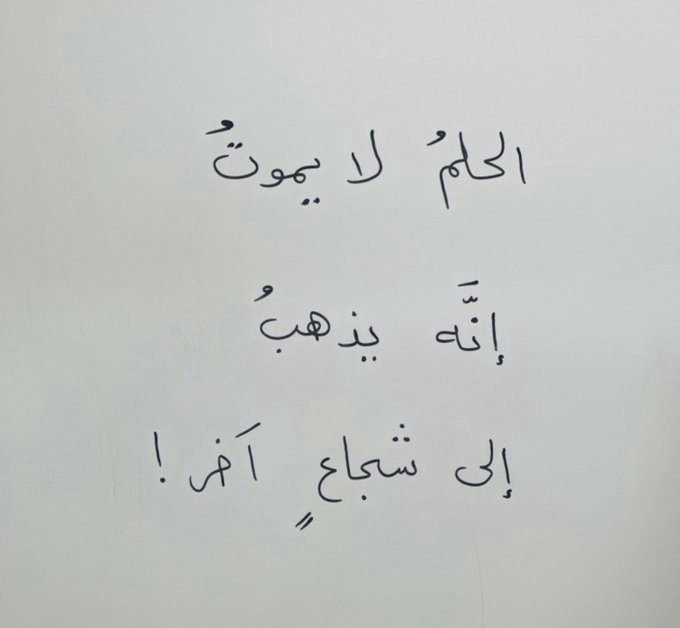 الحلمُ لا يموتُ
إنَّه يذهبُ
إلى شجاعٍ آخر !